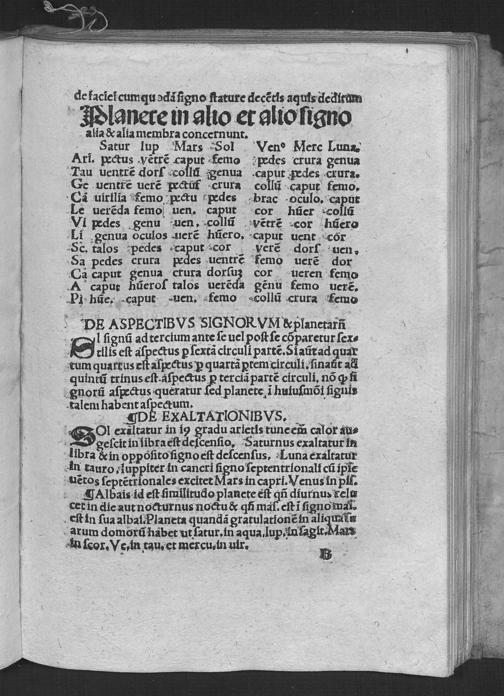 de faciei cum quodā signo stature decētis aquis deditum
Planete in alio et alio signo
alia & alia membra concernunt.
Satur Iup Mars Sol Venᵒ Merc Luna.
Ari. pectus vētrē caput femo pedes crura genua
Tau uentrē dorſ collū genua caput pedes crura.
Ge uentrē uerē pectuſ crura collū caput femo.
Cā uirilia femo pectu pedes brac oculo. caput
Le uerēda femo uen. caput cor hūer collū
Vi pedes genu uen. collū vētrē cor hūero
Li genua oculos uerē hūero. caput uent cōr
Sc. talos pedes caput cor verē dorſ uen.
Sa pedes crura pedes uentrē femo uerē dor
Ca caput genua crura dorsuʒ cor ueren femo
A caput hūeroſ talos uerēda gēnu femo uerē.
Pi hūe. caput uen. femo collū crura femo
DE ASPECTIBVS SIGNORVM & planetarū
SI signū ad tercium ante se uel post se cōparetur sex-
tilis est aspectus p sextā circuli partē. Si aūt ad quar
tum quartus est aspectus p quartā ptem circuli, sin aūt ad
quintū trinus est aspectus p terciā partē circuli, nō q̄ si
gnorū aspectus queratur sed planete ī huiusmōi signis
talem habent aspectum.
¶DE EXALTATIONIBVS.
SOl exaltatur in 19 gradu arietis tunc em̄ calor au-
gescit in libra est descensio. Saturnus exaltatur in
libra & in opposito signo est descensus. Luna exaltatur
in tauro, Iuppiter in cancri signo septentrionali cū ipse
uētos septētrionales excitet Mars in capri. Venus in pis.
¶Albais id est similitudo planete ēst qn̄ diurnus relu
cet in die aut nocturnus noctu & qn̄ mas. est ī signo mas.
est in sua albai. Planeta quandā gratulationē in aliqua
arum domorū habet ut satur, in aqua, Iup, in sagit, Mars
in scor, Ve, in tau, et mercu, in uir.
B